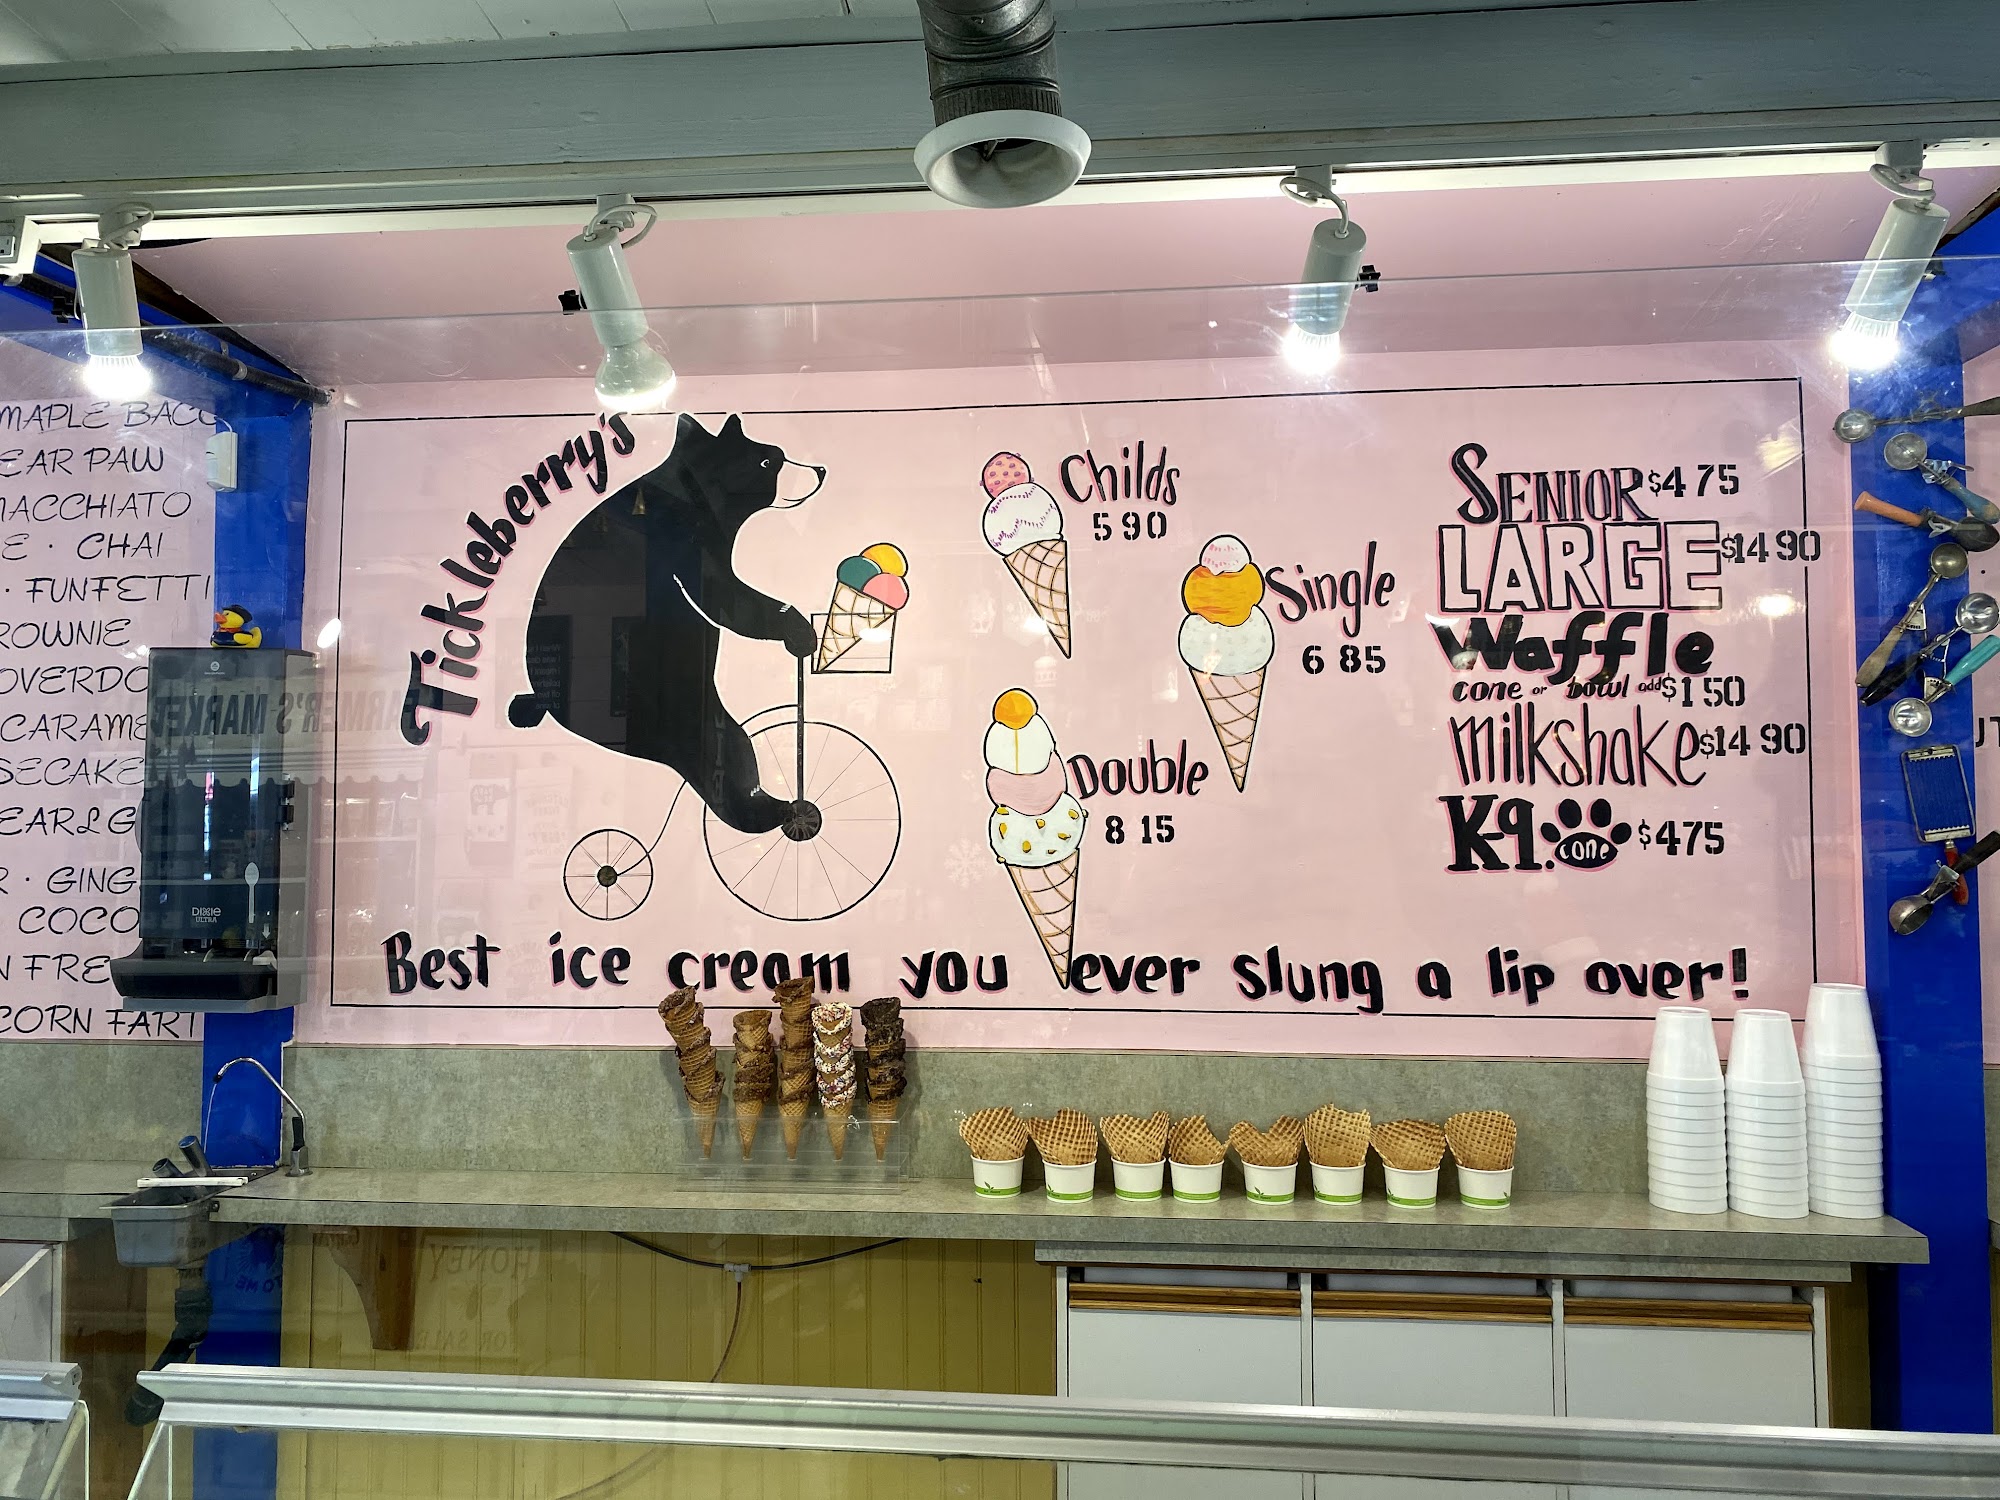 MAPLE
PAW
MACCHIATO
CHAI
FUNFETTI
CORN FART
DIXIE
ULTRA
Tickleberry's
Childs
5 90
Single
6 85
Double
8 15
SENIOR $4 75
LARGE $14 90
Waffle
cone or bowl add $1 50
milkshake $14 90
K-9 cone $4 75
Best ice cream you ever slung a lip over!
FARMER'S MARKET
HONEY
FOR SALE